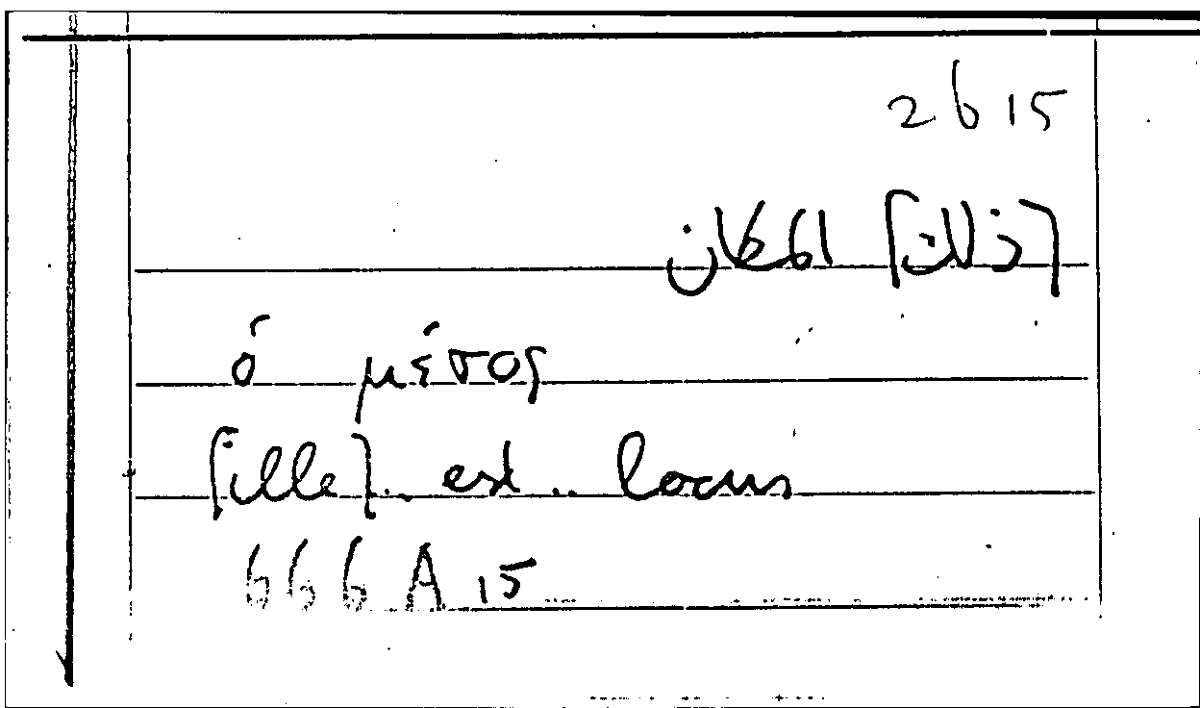 2 b 15
[ذلك] المكان
ὁ μέσος
[ille] .. est .. locus
666 A 15